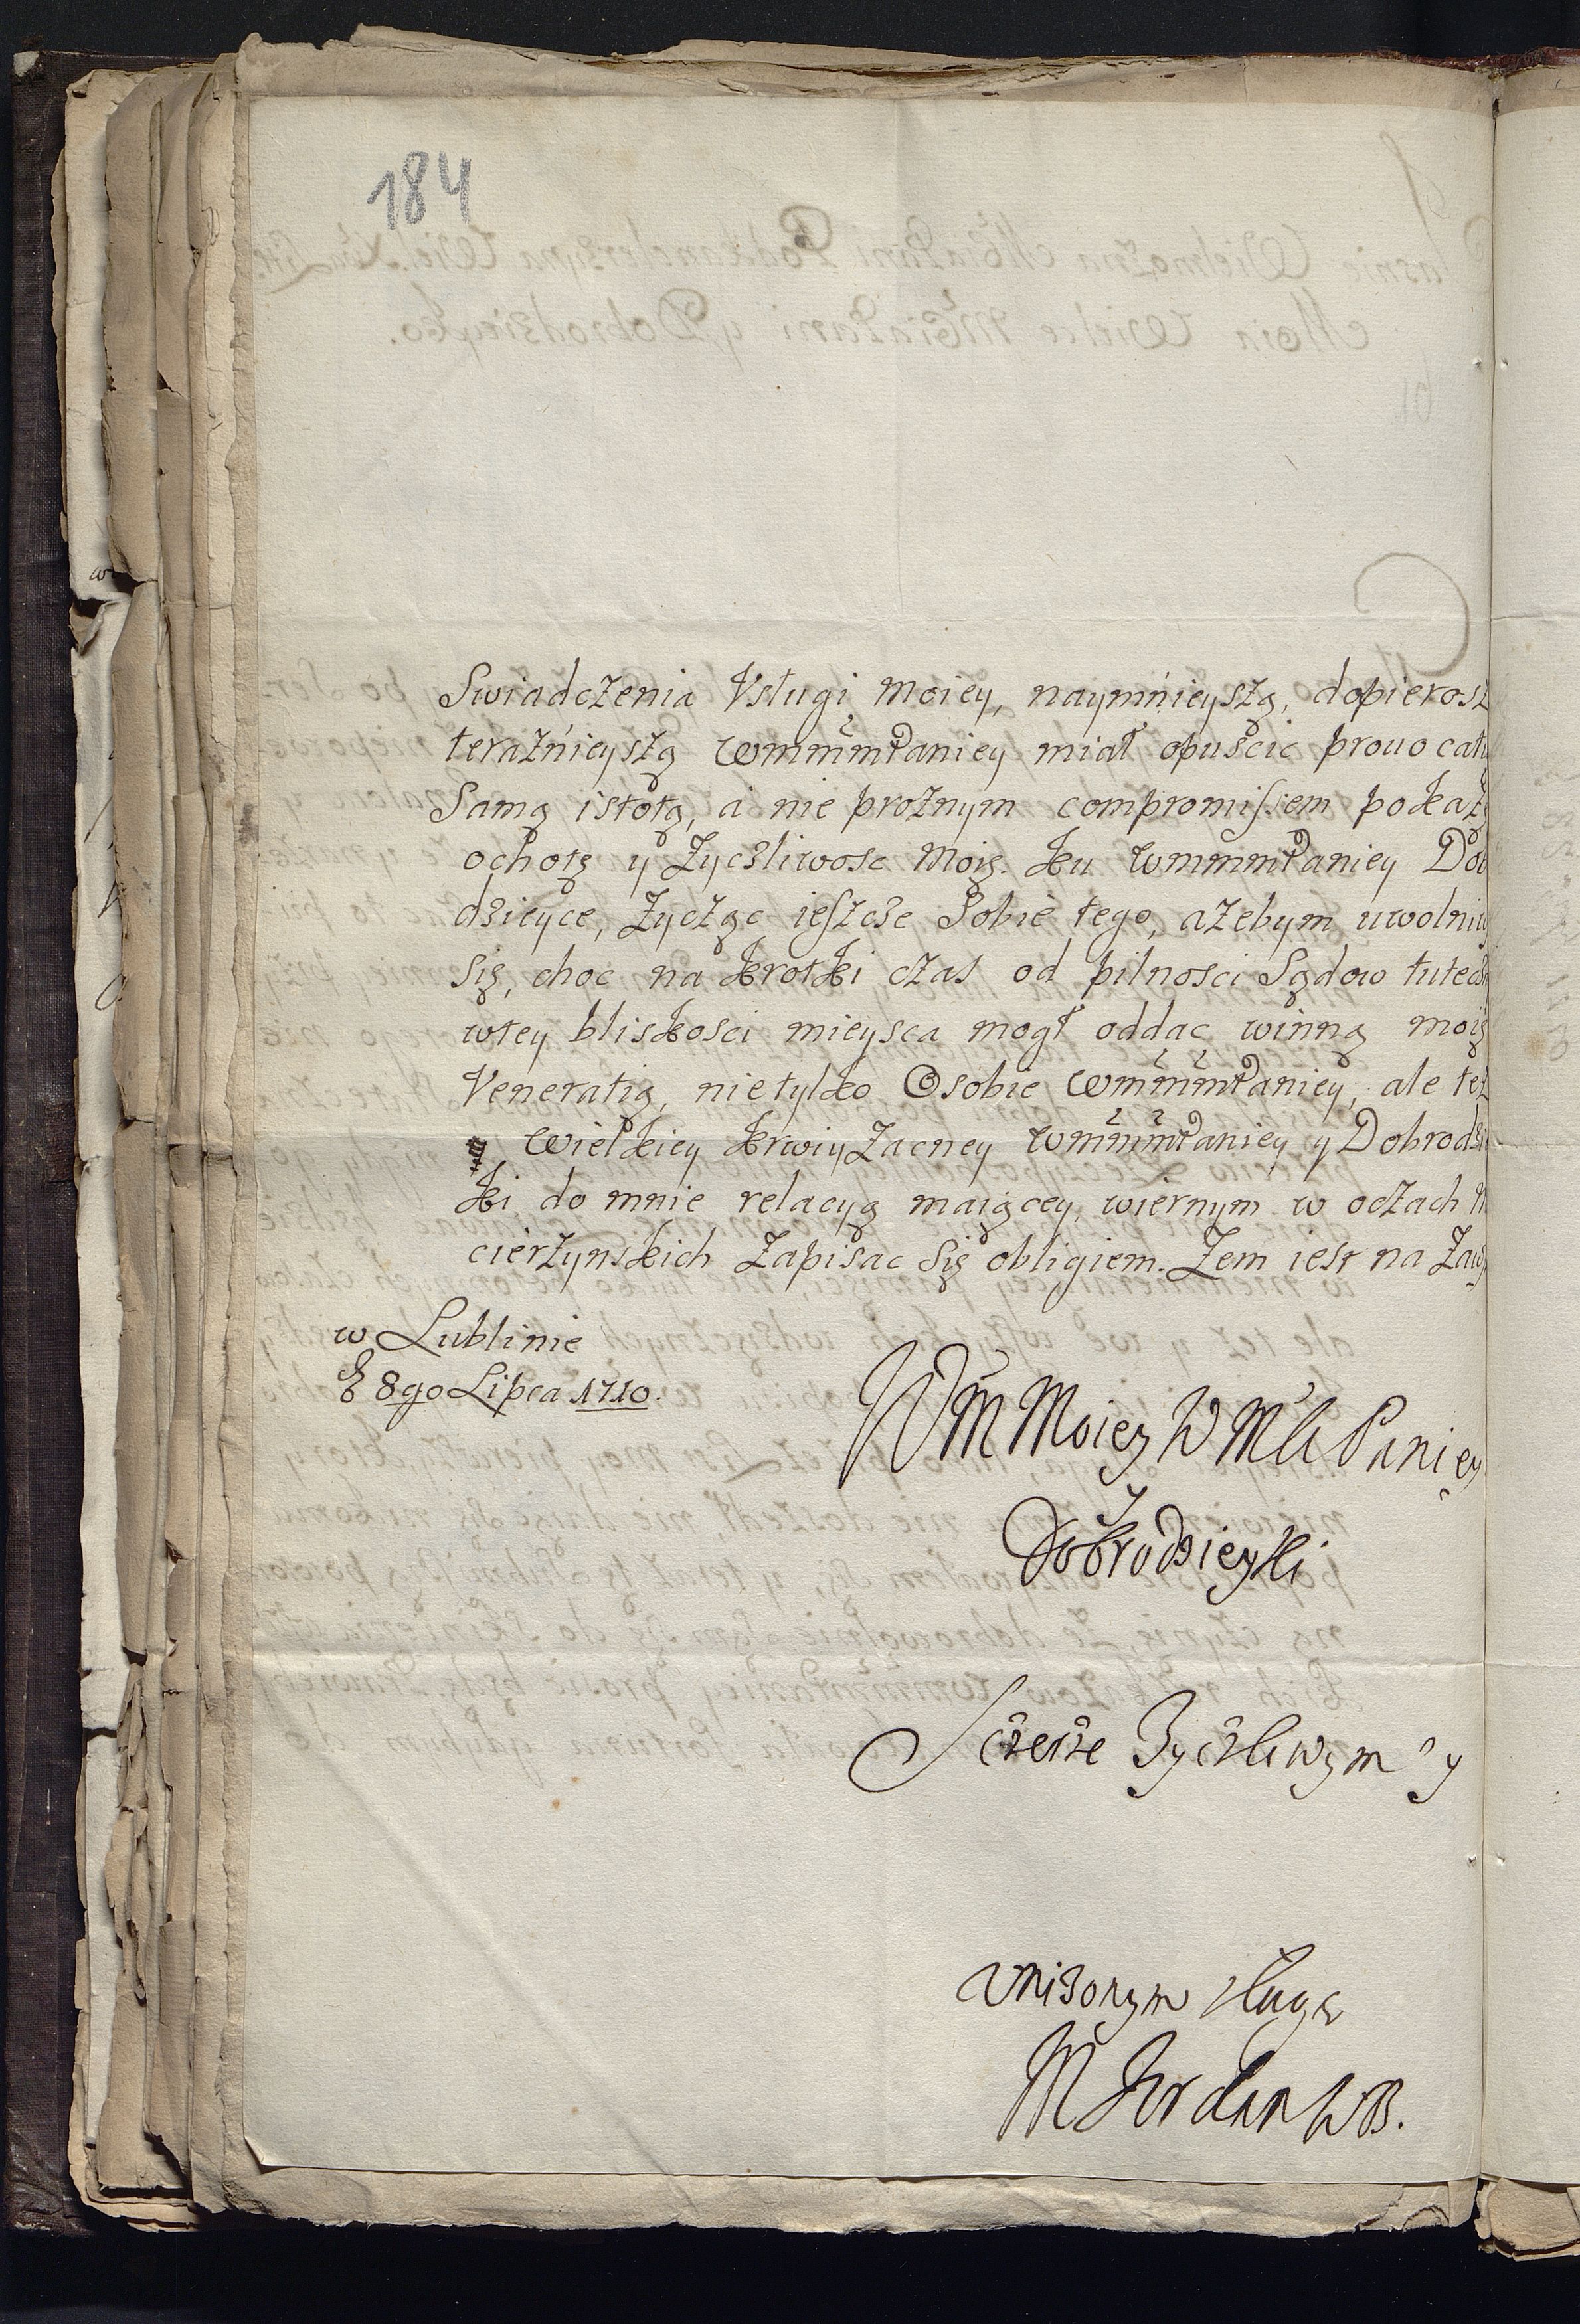 184
Swiadczenia Vsługi moiey, naymnieyszą, dopierosz
teraznieyszą WmmmPaniey miał opuscic prouocaty
Samą istotą, a nie proznym compromissem pokazę
ochotę y Zyczliwosc moię. ku WmmmPaniey Dob
dzieyce, Zycząc ieszcze Sobie tego, azebym uwolniw
się, choc na krotki czas od pilnosci Sądow tutecz
wtey bliskosci mieysca mogł oddac winną moię
Veneratią, nietylko Osobie WmmmPaniey, ale tez
y Wielkiey krwiyZacney WmmmPaniey y Dobrodzi
ki do mnie relacyą maiącey, wiernym w oczach M
cierzynskich Zapisac się obligiem. Zem iest na Zaw
w Lublinie
8go Lipca 1710.
WM Moiey W M Paniey
y
Dobrodzieyki
Sczerze Zyczliwym y
Vnizonym sługą
M Jordan WB.